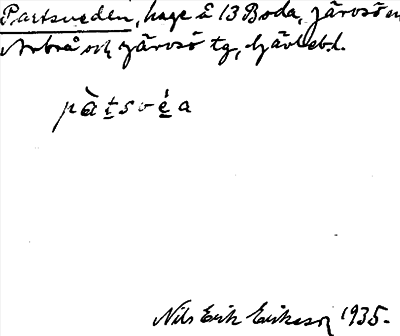 Partsveden, hage å 13 Boda, Järvsö
Arbrå och Järvsö tg, Gävlebd.
pàtsvéa
Nils Erik Eriksson 1935.